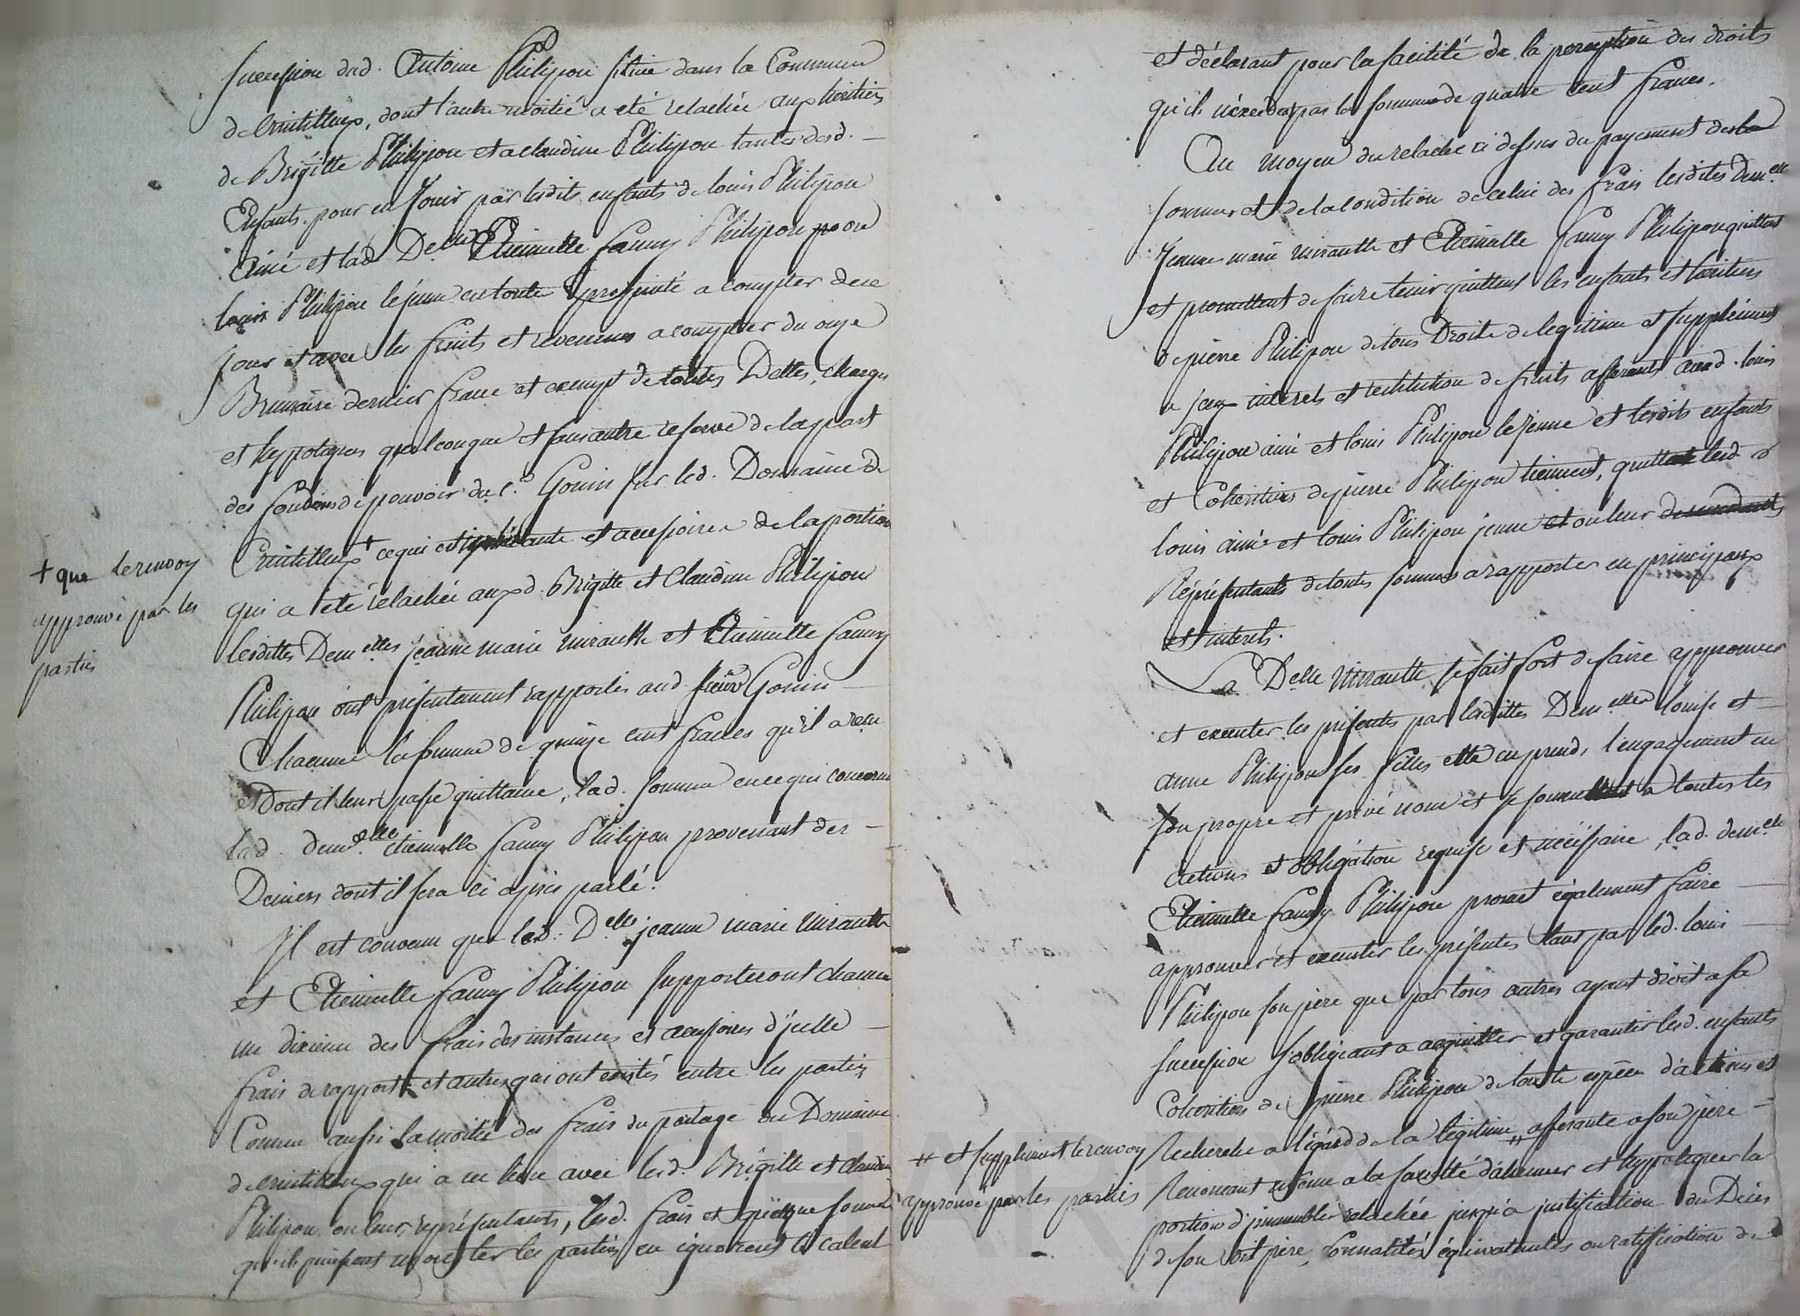 succession dud. Antoine Philipon située dans la Commune
de Cruitilleux, dont l'autre moitié a été relachée aux héritiers
de Brigitte Philipon et a claudine Philipon tantes desd. —
Enfants pour en Jouir par lesdits enfants de louis Philipon
Ainé et lad Delle Etiennette fanny Philipon pr ou
louis Philipon lejeune en toute proprieté a compter de ce
Jour et avec les fruits et revenus a compter du onze
Brumaire dernier franc et exempt de toutes Dettes, charges
et hypoteques quelconque et sans autre reserve de la part
des fondés de pouvoir du C.n Gonin sur led. Domaine de
Cruitilleux + ce qui est inhérante et accessoire de la portion
qui a été relachée auxd. Brigitte et Claudine Philipon
lesdittes Dem.elles jeanne marie miraulte et Etiennette fanny
Philipon ont présentement rapportés aud. sieur Gonin —
Chacune la somme de quinze cent francs qu'il a reçu
et Dont il leur passe quittance, lad. somme en ce qui concerne
lad. dem.elle etiennette fanny Philipon provenant des —
Deniers dont il sera ci après parlé.
Il est convenu que les d. D.elles jeanne marie miraulte
et Etiennette fanny Philipon supporteront chacune
un dixieme des frais des instances et accessoires d'jcelle —
frais de rapports et autres qui ont existés entre les parties
Comme aussi la moitié des frais du partage du Domaine
de Cruitilleux qui a eu lieu avec lesd. Brigitte et claudine
Philipon ou leurs représentants, lesd. frais et quelque somme
qu'ils puissent monter les parties en ignorent le calcul
+ que le renvoy
approuvé par les
parties
et déclarant pour la facilité de la perception des droits
qu'ils n'excedent pas la somme de quatre cent francs.
Au moyen du relaché ci dessus du payement des la
sommes et de la condition de celui des frais lesdites Dem.elles
Jeanne marie miraulte et Etiennette fanny Philipon quittent
et promettent de faire tenir quittent les enfants et héritiers
de pierre Philipon de tous Droits de legitime et supplément
a jceux interets et restitution de fruits afferants auxd. louis
Philipon ainé et louis Philipon lejeune et lesdits enfants
et Cohéritiers de pierre Philipon tiennent, quittent lesd.
louis ainé et louis Philipon jeune et ou leur descendants
Réprésentants de toutes sommes a rapporter en principaux
et interets.
La Delle Miraulte se fait fort de faire approuver
et executer les présentes par lesdittes Dem.elles louise et —
anne Philipon ses filles elle en prends l'engagement en
son propre et privé nom et se soumettant a toutes les
actions et obligation requise et nécéssaire, lad. dem.elle
Etiennette fanny Philipon promet également faire —
approuver et executer les présentes tant par led. louis —
Philipon son père que par tous autres ayant droit a sa
succession s'obligeant a acquitter et garantir lesd. enfants
Cohéritiers de pierre Philipon de toute espèce d'actions et
Recherche a l'égard de la légitime // afferante a son père —
Renoncant même a la faculté d'aliener et hypotequer la
portion d'immeubles relachée jusqu'a justification du Décès
de son dit père, formalités équivalentes ou ratification de
// et supplément le renvoy
approuvé par les parties